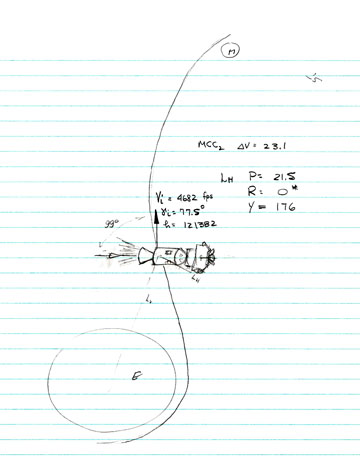 M
MCC₂ ΔV = 23.1
LH P= 21.5
R: 0°
Y = 176
Vi = 4682 fps
γi = 77.5°
h = 121382
99°
E